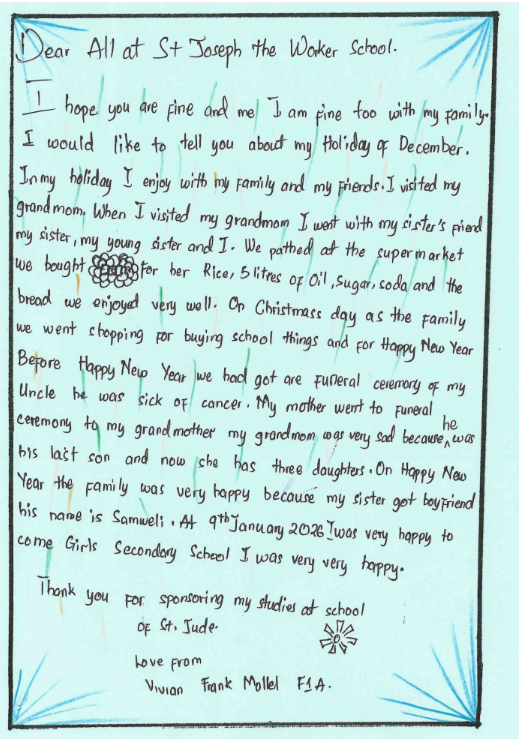 Dear All at St Joseph the Worker School.
I hope you are fine and me I am fine too with my family.
I would like to tell you about my Holiday of December.
In my holiday I enjoy with my family and my friends. I visited my
grandmom, When I visited my grandmom I went with my sister's friend
my sister, my young sister and I. We pathed at the supermarket
we bought for her Rice, 5 litres of Oil, sugar, soda, and the
bread we enjoyed very well. On Christmass day as the family
we went shopping for buying school things and for Happy New Year
Before Happy New Year we had got are funeral ceremony of my
Uncle he was sick of cancer. My mother went to funeral
ceremony to my grandmother my grandmom was very sad because he was
his last son and now she has three daughters. On Happy New
Year the family was very happy because my sister got boyfriend
his name is Samweli. At 9th January 2026 I was very happy to
come Girls Secondary School I was very very happy.
Thank you for sponsoring my studies at school
of St. Jude.
Love from
Vivian Frank Mollel F1A.